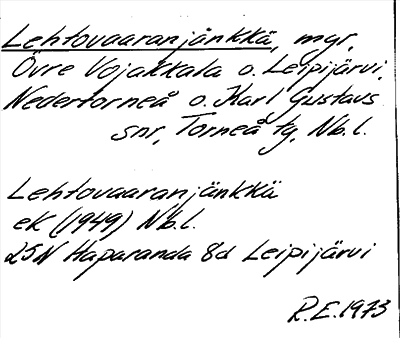 Lehtovaaranjänkkä, mgr,
Övre Vojakkala o. Leipijärvi,
Nedertorneå o. Karl Gustavs
snr, Torneå tg, Nb.l.
Lehtovaaranjänkkä
ek (1949) Nb.l.
25N Haparanda 8d Leipijärvi
R.E. 1973